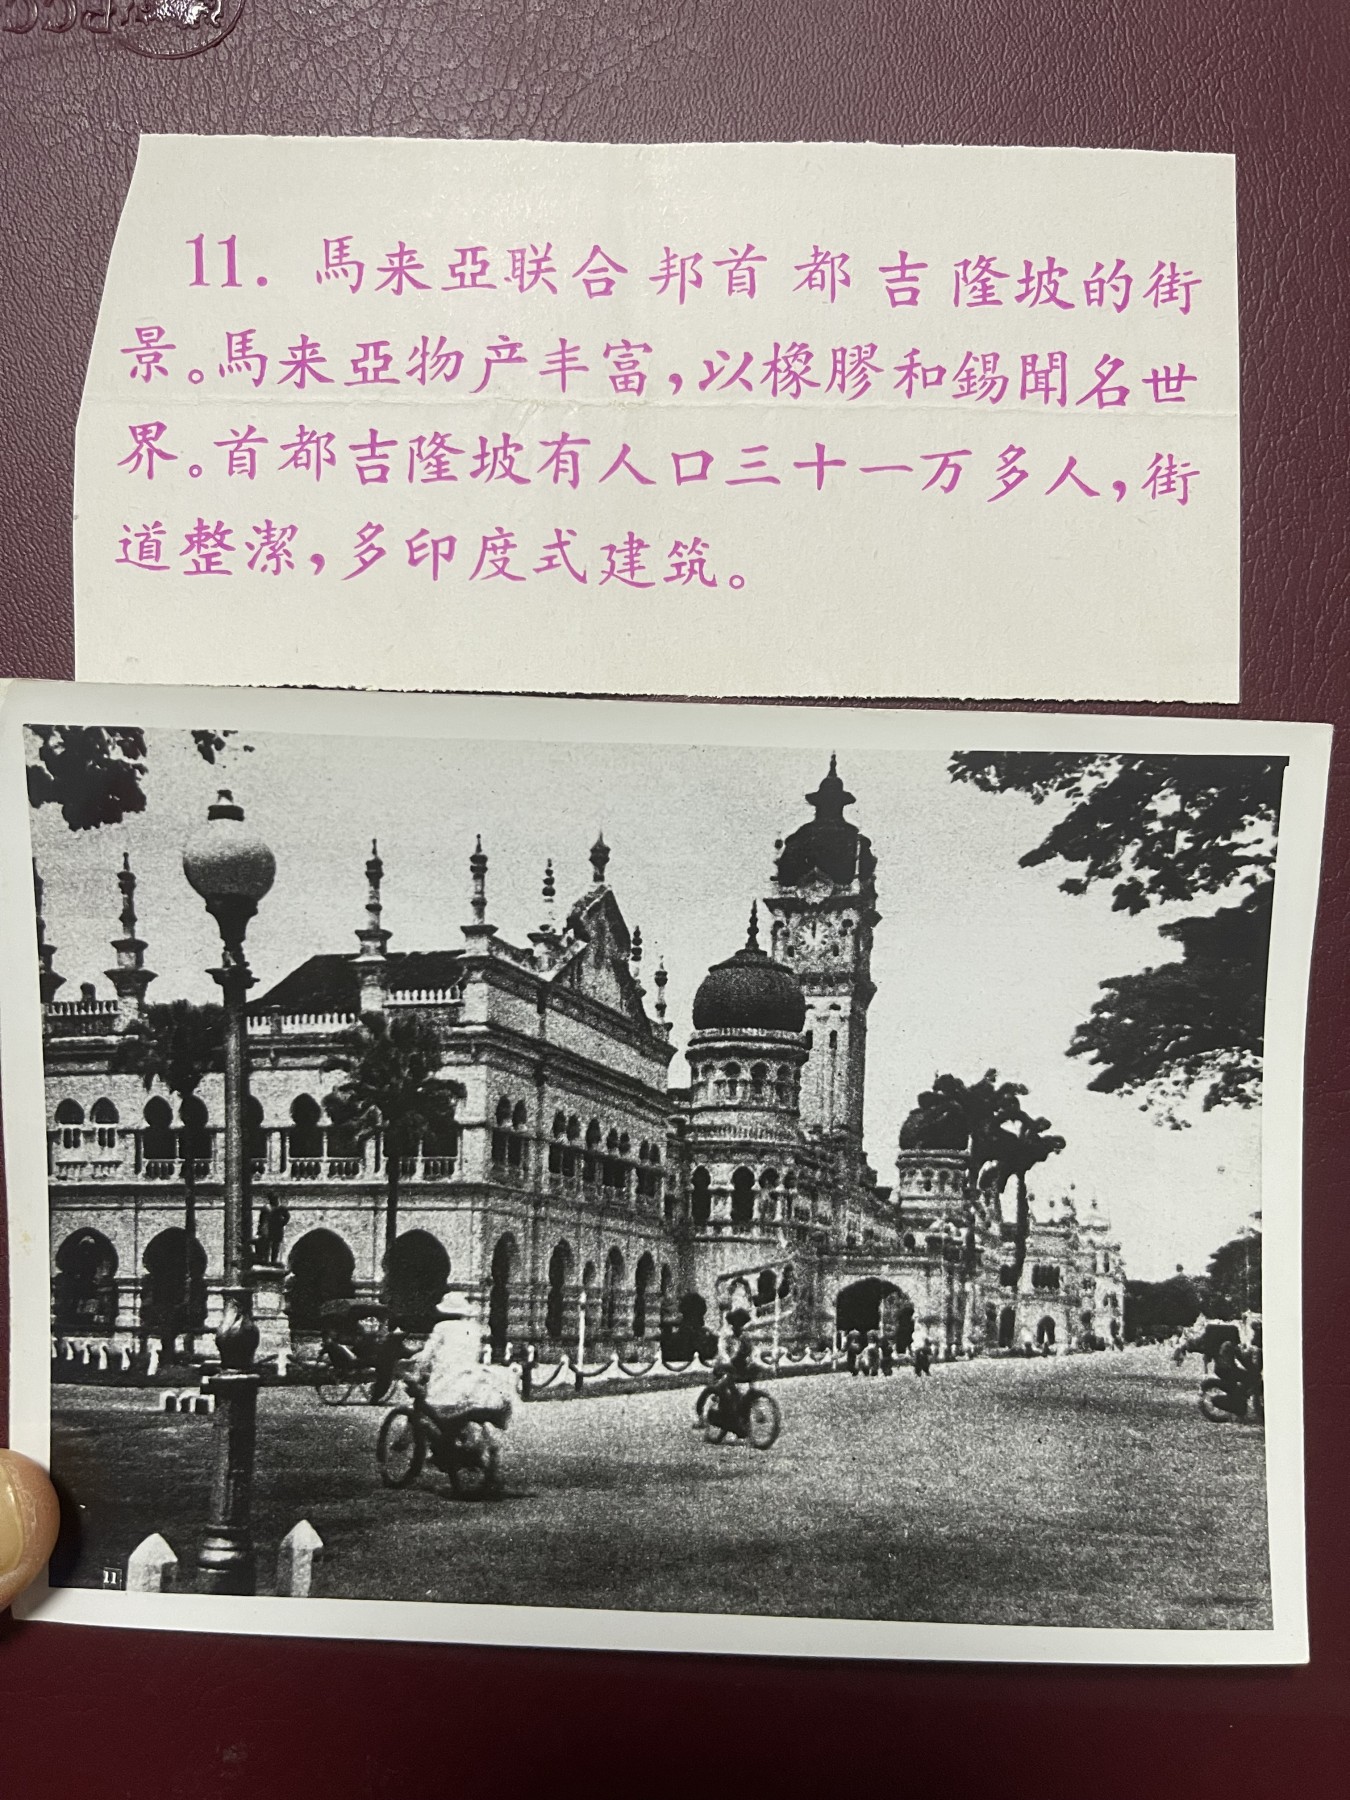 11. 馬来亞联合邦首都吉隆坡的街
景。馬来亞物产丰富，以橡膠和錫聞名世
界。首都吉隆坡有人口三十一万多人，街
道整潔，多印度式建筑。
11